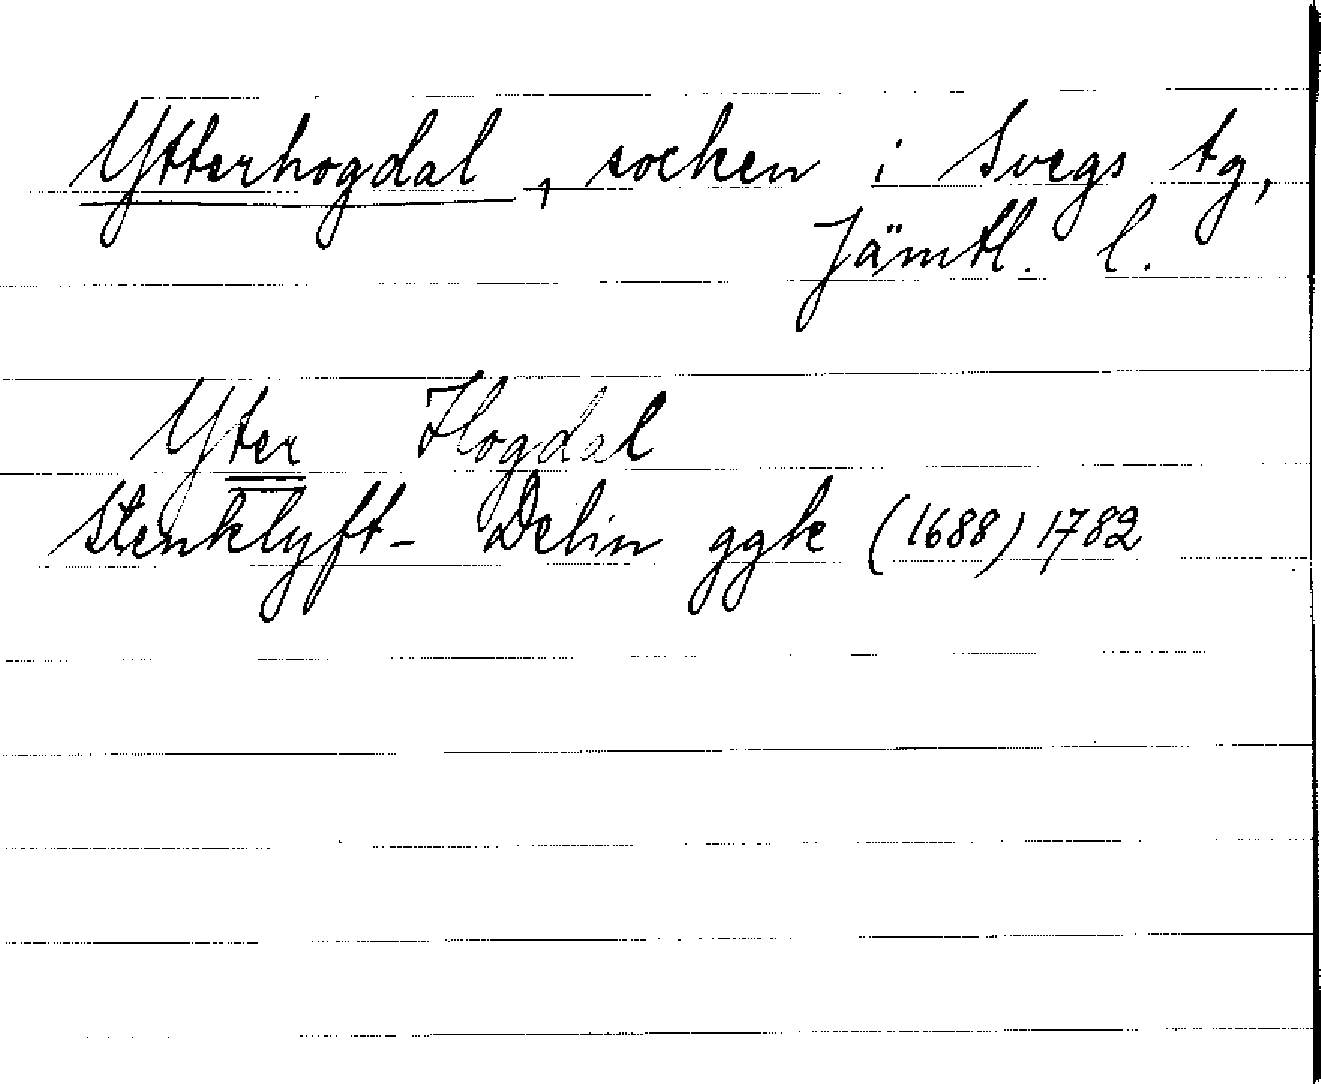 Ytterhogdal, socken i Svegs tg,
Jämtl. l.
Yter Hogdal
Stenklyft- Delin ggk (1688) 1782